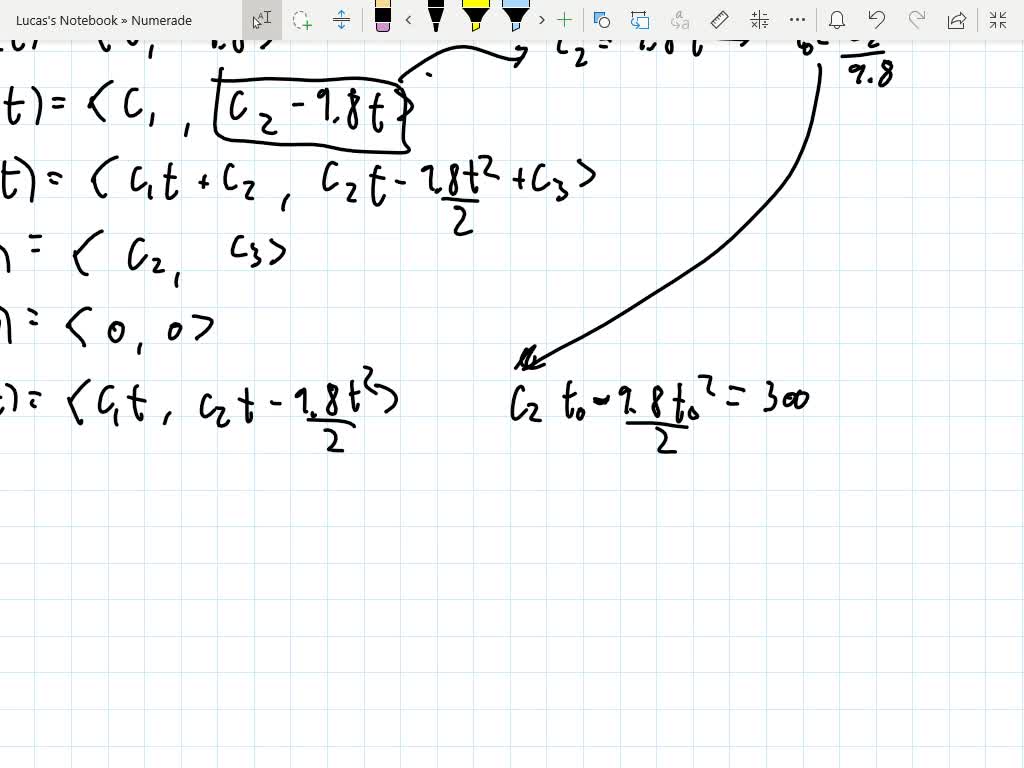 Lucas's Notebook » Numerade
9.8
t) = ⟨ C₁ , C₂ - 9.8t ⟩
t) = ⟨ C₁t + C₂ , C₂t - 9.8t²/2 + C₃ ⟩
) = ⟨ C₂, C₃ ⟩
) = ⟨ 0, 0 ⟩
t) = ⟨ C₁t , C₂t - 9.8t²/2 ⟩ C₂ t₀ - 9.8t₀²/2 = 300